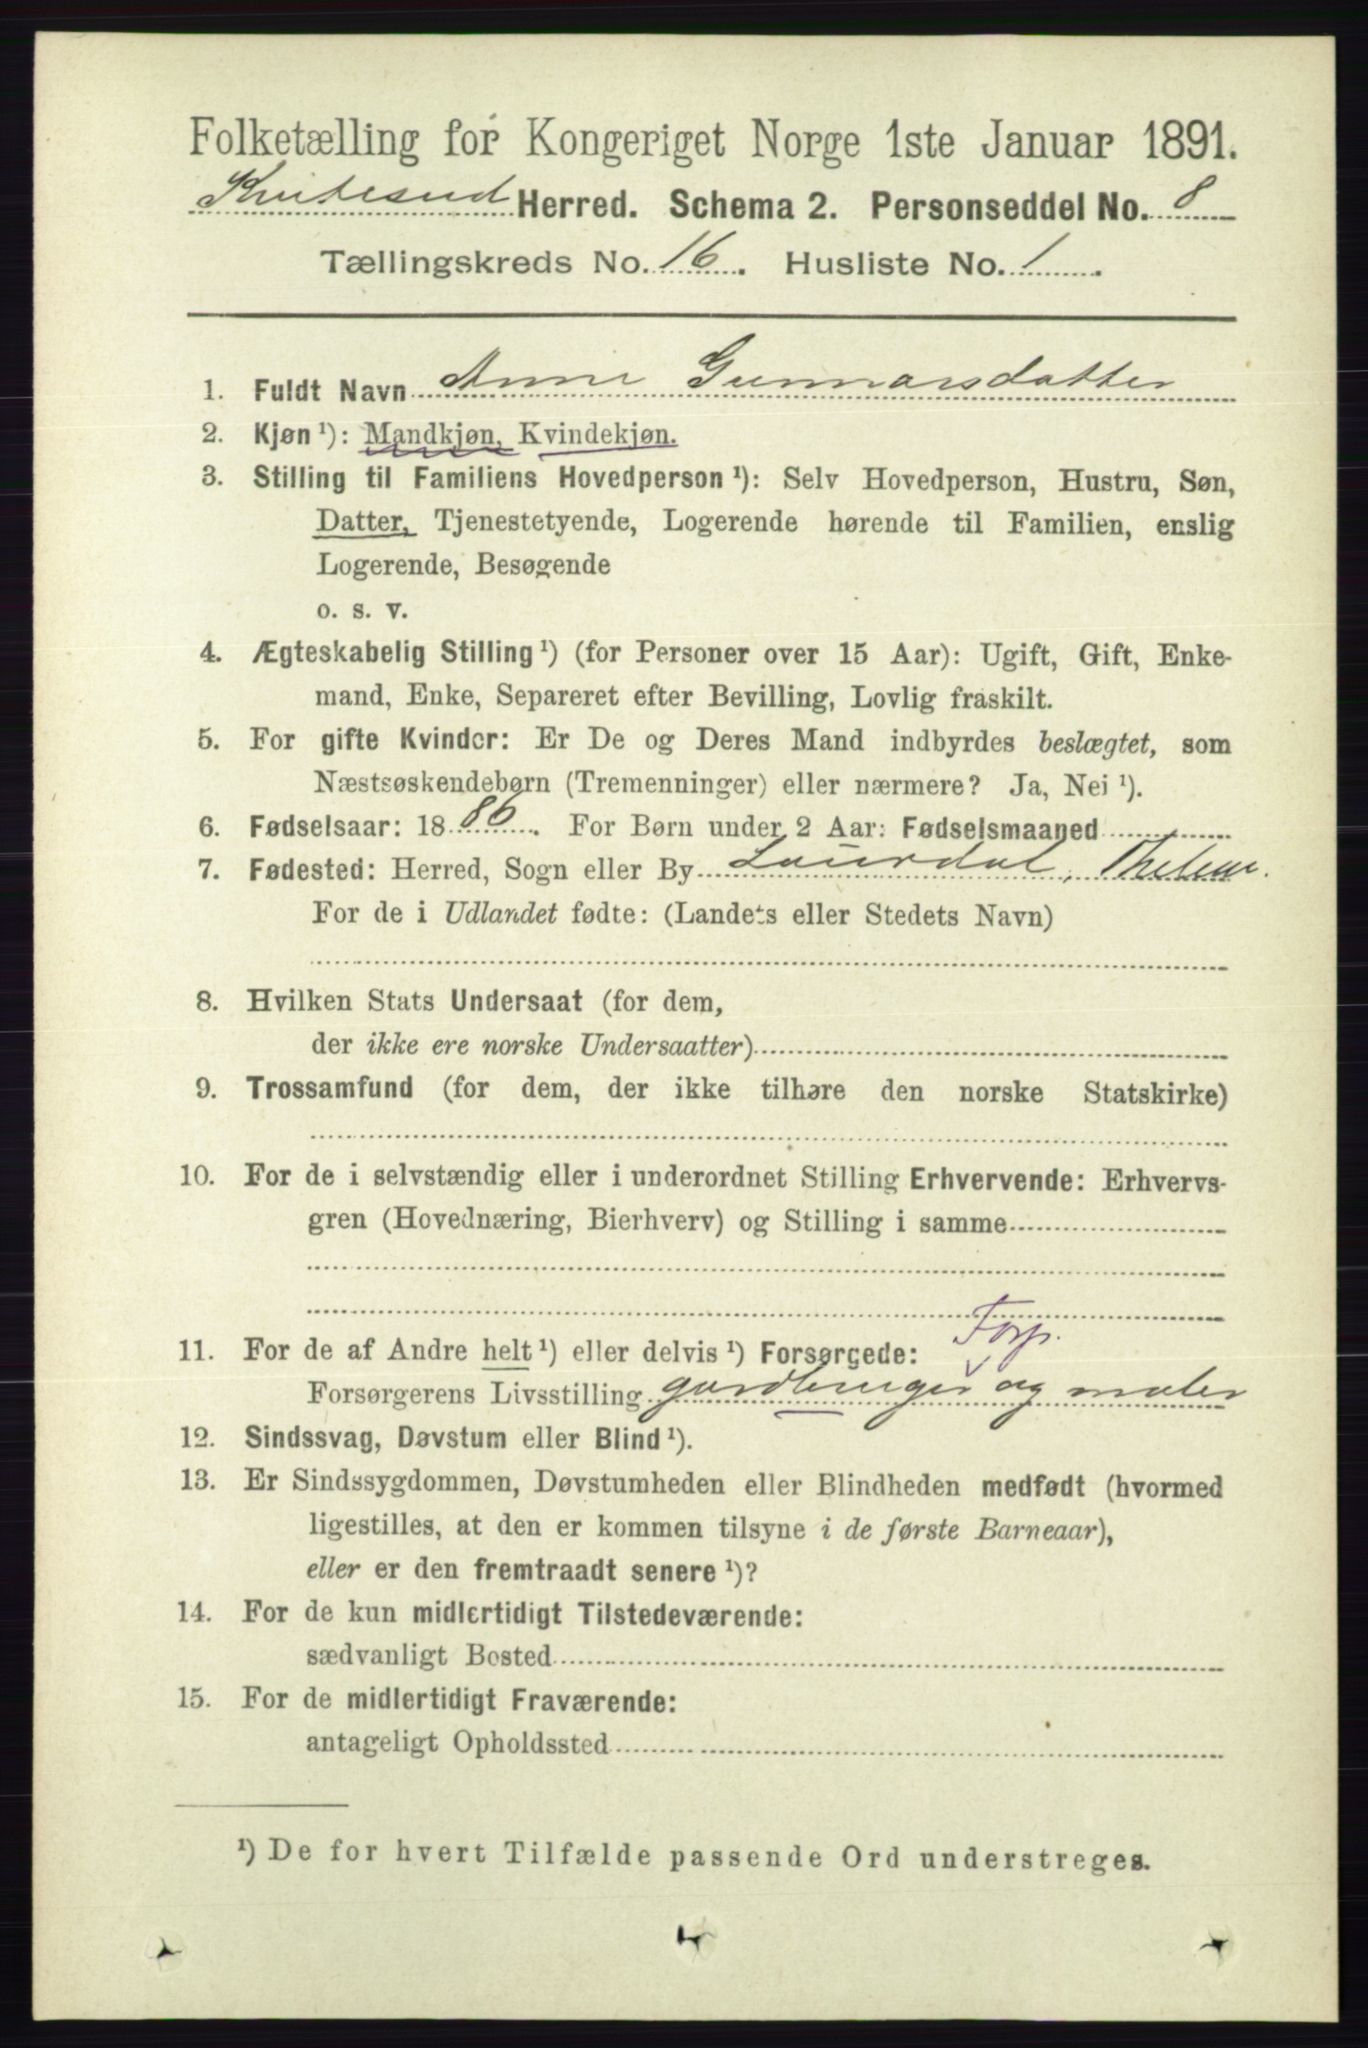 Folketælling for Kongeriget Norge 1ste Januar 1891.
Kviteseid Herred. Schema 2. Personseddel No. 8
Tællingskreds No. 16. Husliste No. 1.
1. Fuldt Navn Anne Gunnarsdatter
2. Kjøn ¹): Mandkjøn, Kvindekjøn.
3. Stilling til Familiens Hovedperson ¹): Selv Hovedperson, Hustru, Søn,
Datter, Tjenestetyende, Logerende hørende til Familien, enslig
Logerende, Besøgende
o. s. v.
4. Ægteskabelig Stilling ¹) (for Personer over 15 Aar): Ugift, Gift, Enke-
mand, Enke, Separeret efter Bevilling, Lovlig fraskilt.
5. For gifte Kvinder: Er De og Deres Mand indbyrdes beslægtet, som
Næstsøskendebørn (Tremenninger) eller nærmere? Ja, Nei ¹).
6. Fødselsaar: 1886. For Børn under 2 Aar: Fødselsmaaned
7. Fødested: Herred, Sogn eller By Laurdal, Thelem.
For de i Udlandet fødte: (Landets eller Stedets Navn)
8. Hvilken Stats Undersaat (for dem,
der ikke ere norske Undersaatter)
9. Trossamfund (for dem, der ikke tilhøre den norske Statskirke)
10. For de i selvstændig eller i underordnet Stilling Erhvervende: Erhvervs-
gren (Hovednæring, Bierhverv) og Stilling i samme
Forp.
11. For de af Andre helt ¹) eller delvis ¹) Forsørgede:
Forsørgerens Livsstilling gardbruger og maler
12. Sindssvag, Døvstum eller Blind ¹).
13. Er Sindssygdommen, Døvstumheden eller Blindheden medfødt (hvormed
ligestilles, at den er kommen tilsyne i de første Barneaar),
eller er den fremtraadt senere ¹)?
14. For de kun midlertidigt Tilstedeværende:
sædvanligt Bosted
15. For de midlertidigt Fraværende:
antageligt Opholdssted
¹) De for hvert Tilfælde passende Ord understreges.